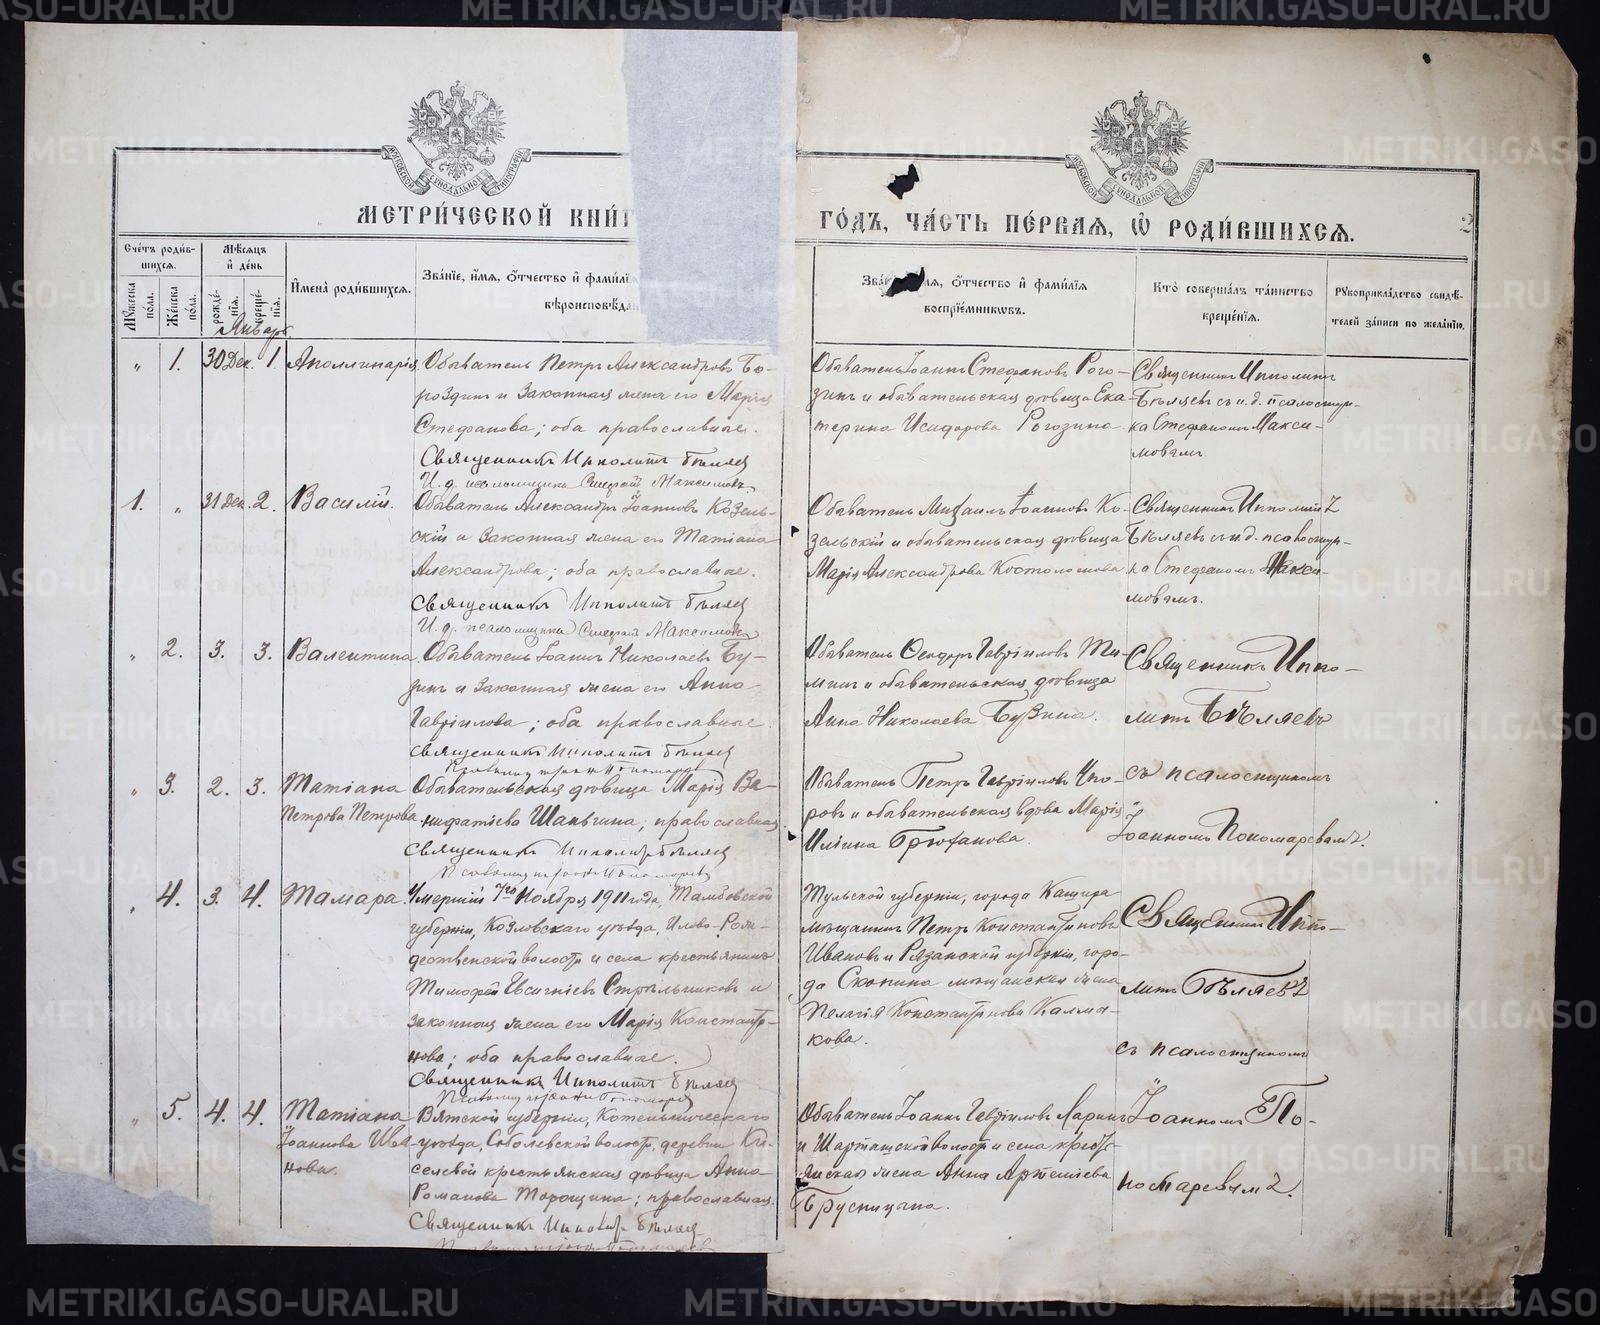 МЕТРИ́ЧЕСКОЙ КНИ́Г
ГО́ДЪ, ЧА́СТЬ ПЕ́РВАЯ, Ѡ҆ РОДИ́ВШИХСЯ.
2
МОСКОВСКОЙ СѴНОДАЛЬНОЙ ТИПОГРАФІИ
МОСКОВСКОЙ СѴНОДАЛЬНОЙ ТИПОГРАФІИ
Сче́тъ роди́в-
шихся.
Мꙋжеска по́ла.
Же́нска по́ла.
Мѣ́сяцъ
и҆ де́нь
рожде́-
нїя.
креще́-
нїя.
И҆мена̀ роди́вшихся.
Зва́нїе, и҆́мя, ѻ҆́тчество и҆ фами́лїя
вѣроисповѣ́да
Зва́ ля, ѻ҆́тчество и҆ фами́лїя
воспрїе́мникѡвъ.
Кто̀ соверша́лъ та́инство
креще́нїя.
Рꙋкоприкла́дство свидѣ́-
телей за́писи по жела́нїю.
Январь
" 1. 30 Дек. 1. Аполлинарія
Обыватель Петръ Александровъ Бо-
роздинъ и законная жена его Марія
Стефанова; оба православные.
Священникъ Ипполитъ Бѣляев
И. д. псаломщика Стефанъ Максимовъ
Обыватель Іоаннъ Стефановъ Рого-
зинъ и обывательская дѣвица Ека-
терина Исидорова Рогозина
Священникъ Ипполитъ
Бѣляевъ съ и. д. псаломщи-
ка Стефаномъ Макси-
мовымъ.
1. " 31 Дек. 2. Василій.
Обыватель Александръ Іоанновъ Козель-
скій и законная жена его Татіана
Александрова; оба православные.
Священникъ Ипполитъ Бѣляев
И. д. псаломщика Стефанъ Максимовъ
Обыватель Михаилъ Іоанновъ Ко-
зельскій и обывательская дѣвица
Марія Александрова Костоломова
Священникъ Ипполитъ
Бѣляевъ съ и. д. псаломщи-
ка Стефаномъ Макси-
мовымъ.
" 2. 3. 3. Валентина.
Обыватель Іоаннъ Николаевъ Бу-
зинъ и законная жена его Анна
Гавріилова; оба православные.
Священникъ Ипполитъ Бѣляев
Обыватель Ѳеодоръ Гавріиловъ Ти-
минъ и обывательская дѣвица
Анна Николаева Бузина.
Священникъ Иппо-
литъ Бѣляевъ
" 3. 2. 3. Татіана
Петрова Петрова
Обывательская дѣвица Марія Ва-
нифатіева Шаньгина; православная
Священникъ Ипполитъ Бѣляев
Обыватель Петръ Гавріиловъ
ровъ и обывательская вдова Марія
Илiина Брюханова.
съ псаломщикомъ
Іоанномъ Пономаревымъ.
" 4. 3. 4. Тамара.
Умершій 7го Ноября 1911 года, Тамбовской
губерніи, Козловскаго уѣзда, Илово-Рож-
дественской волости и села крестьянинъ
Тимофей Евсигніевъ Стрѣльниковъ и
законная жена его Марія Константи-
нова; оба православные.
Священникъ Ипполитъ Бѣляев
Тульской губерніи, города Кашира
мѣщанинъ Петръ Константиновъ
Ивановъ и Рязанской губерніи, горо-
да Скопина мѣщанская жена
Пелагія Константинова Калмы-
кова.
Священникъ Иппо-
литъ Бѣляевъ
съ псаломщикомъ
" 5. 4. 4. Татіана
Іоаннова Ива-
нова.
Вятской губерніи, Котельническаго
уѣзда, Соболевской волости, деревни Ки-
селевой крестьянская дѣвица Анна
Романова Торощина; православная.
Священникъ Ипполитъ Бѣляев
Обыватель Іоаннъ Гавріиловъ Ларинъ
и Шарташской волости и села кресть-
янская жена Анна Артеміева
Брусницына.
Іоанномъ По-
номаревымъ.
METRIKI.GASO-URAL.RU